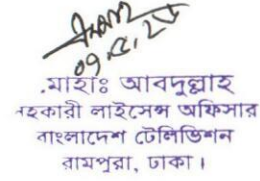 ০৭.৫.২৫
.মাহাঃ আবদুল্লাহ
হকারী লাইসেন্স অফিসার
বাংলাদেশ টেলিভিশন
রামপুরা, ঢাকা।